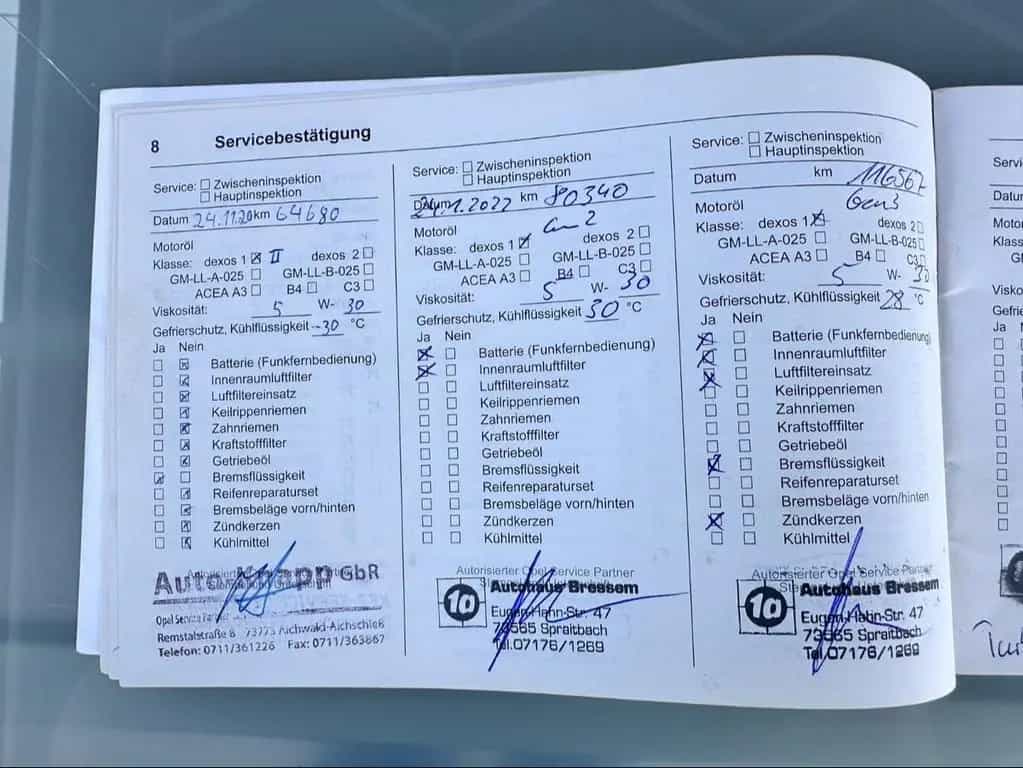 8 Servicebestätigung
Service: Zwischeninspektion
Hauptinspektion
Datum 24.11.20 km 64680
Motoröl
Klasse: dexos 1 II dexos 2
GM-LL-A-025 GM-LL-B-025
ACEA A3 B4 C3
Viskosität: 5 W- 30
Gefrierschutz, Kühlflüssigkeit -30 °C
Ja Nein
Batterie (Funkfernbedienung)
Innenraumluftfilter
Luftfiltereinsatz
Keilrippenriemen
Zahnriemen
Kraftstofffilter
Getriebeöl
Bremsflüssigkeit
Reifenreparaturset
Bremsbeläge vorn/hinten
Zündkerzen
Kühlmittel
Auto Knapp GbR
Opel Service Partner
Remstalstraße 8 73773 Aichwald-Aichschieß
Telefon: 0711/361226 Fax: 0711/363867
Service: Zwischeninspektion
Hauptinspektion
Datum 24.1.2022 km 80340
Motoröl
Klasse: dexos 1 dexos 2
GM-LL-A-025 GM-LL-B-025
ACEA A3 B4 C3
Viskosität: 5 W- 30
Gefrierschutz, Kühlflüssigkeit 30 °C
Ja Nein
Batterie (Funkfernbedienung)
Innenraumluftfilter
Luftfiltereinsatz
Keilrippenriemen
Zahnriemen
Kraftstofffilter
Getriebeöl
Bremsflüssigkeit
Reifenreparaturset
Bremsbeläge vorn/hinten
Zündkerzen
Kühlmittel
Autorisierter Opel Service Partner
10 Autohaus Bressem
Eugen-Hahn-Str. 47
73565 Spraitbach
Tel.07176/1269
Service: Zwischeninspektion
Hauptinspektion
Datum km 116567
Motoröl
Klasse: dexos 1 dexos 2
GM-LL-A-025 GM-LL-B-025
ACEA A3 B4 C3
Viskosität: 5 W- 30
Gefrierschutz, Kühlflüssigkeit 28 °C
Ja Nein
Batterie (Funkfernbedienung)
Innenraumluftfilter
Luftfiltereinsatz
Keilrippenriemen
Zahnriemen
Kraftstofffilter
Getriebeöl
Bremsflüssigkeit
Reifenreparaturset
Bremsbeläge vorn/hinten
Zündkerzen
Kühlmittel
Autorisierter Opel Service Partner
10 Autohaus Bressem
Eugen-Hahn-Str. 47
73565 Spraitbach
Tel.07176/1269
Datum
Motoröl
Ja